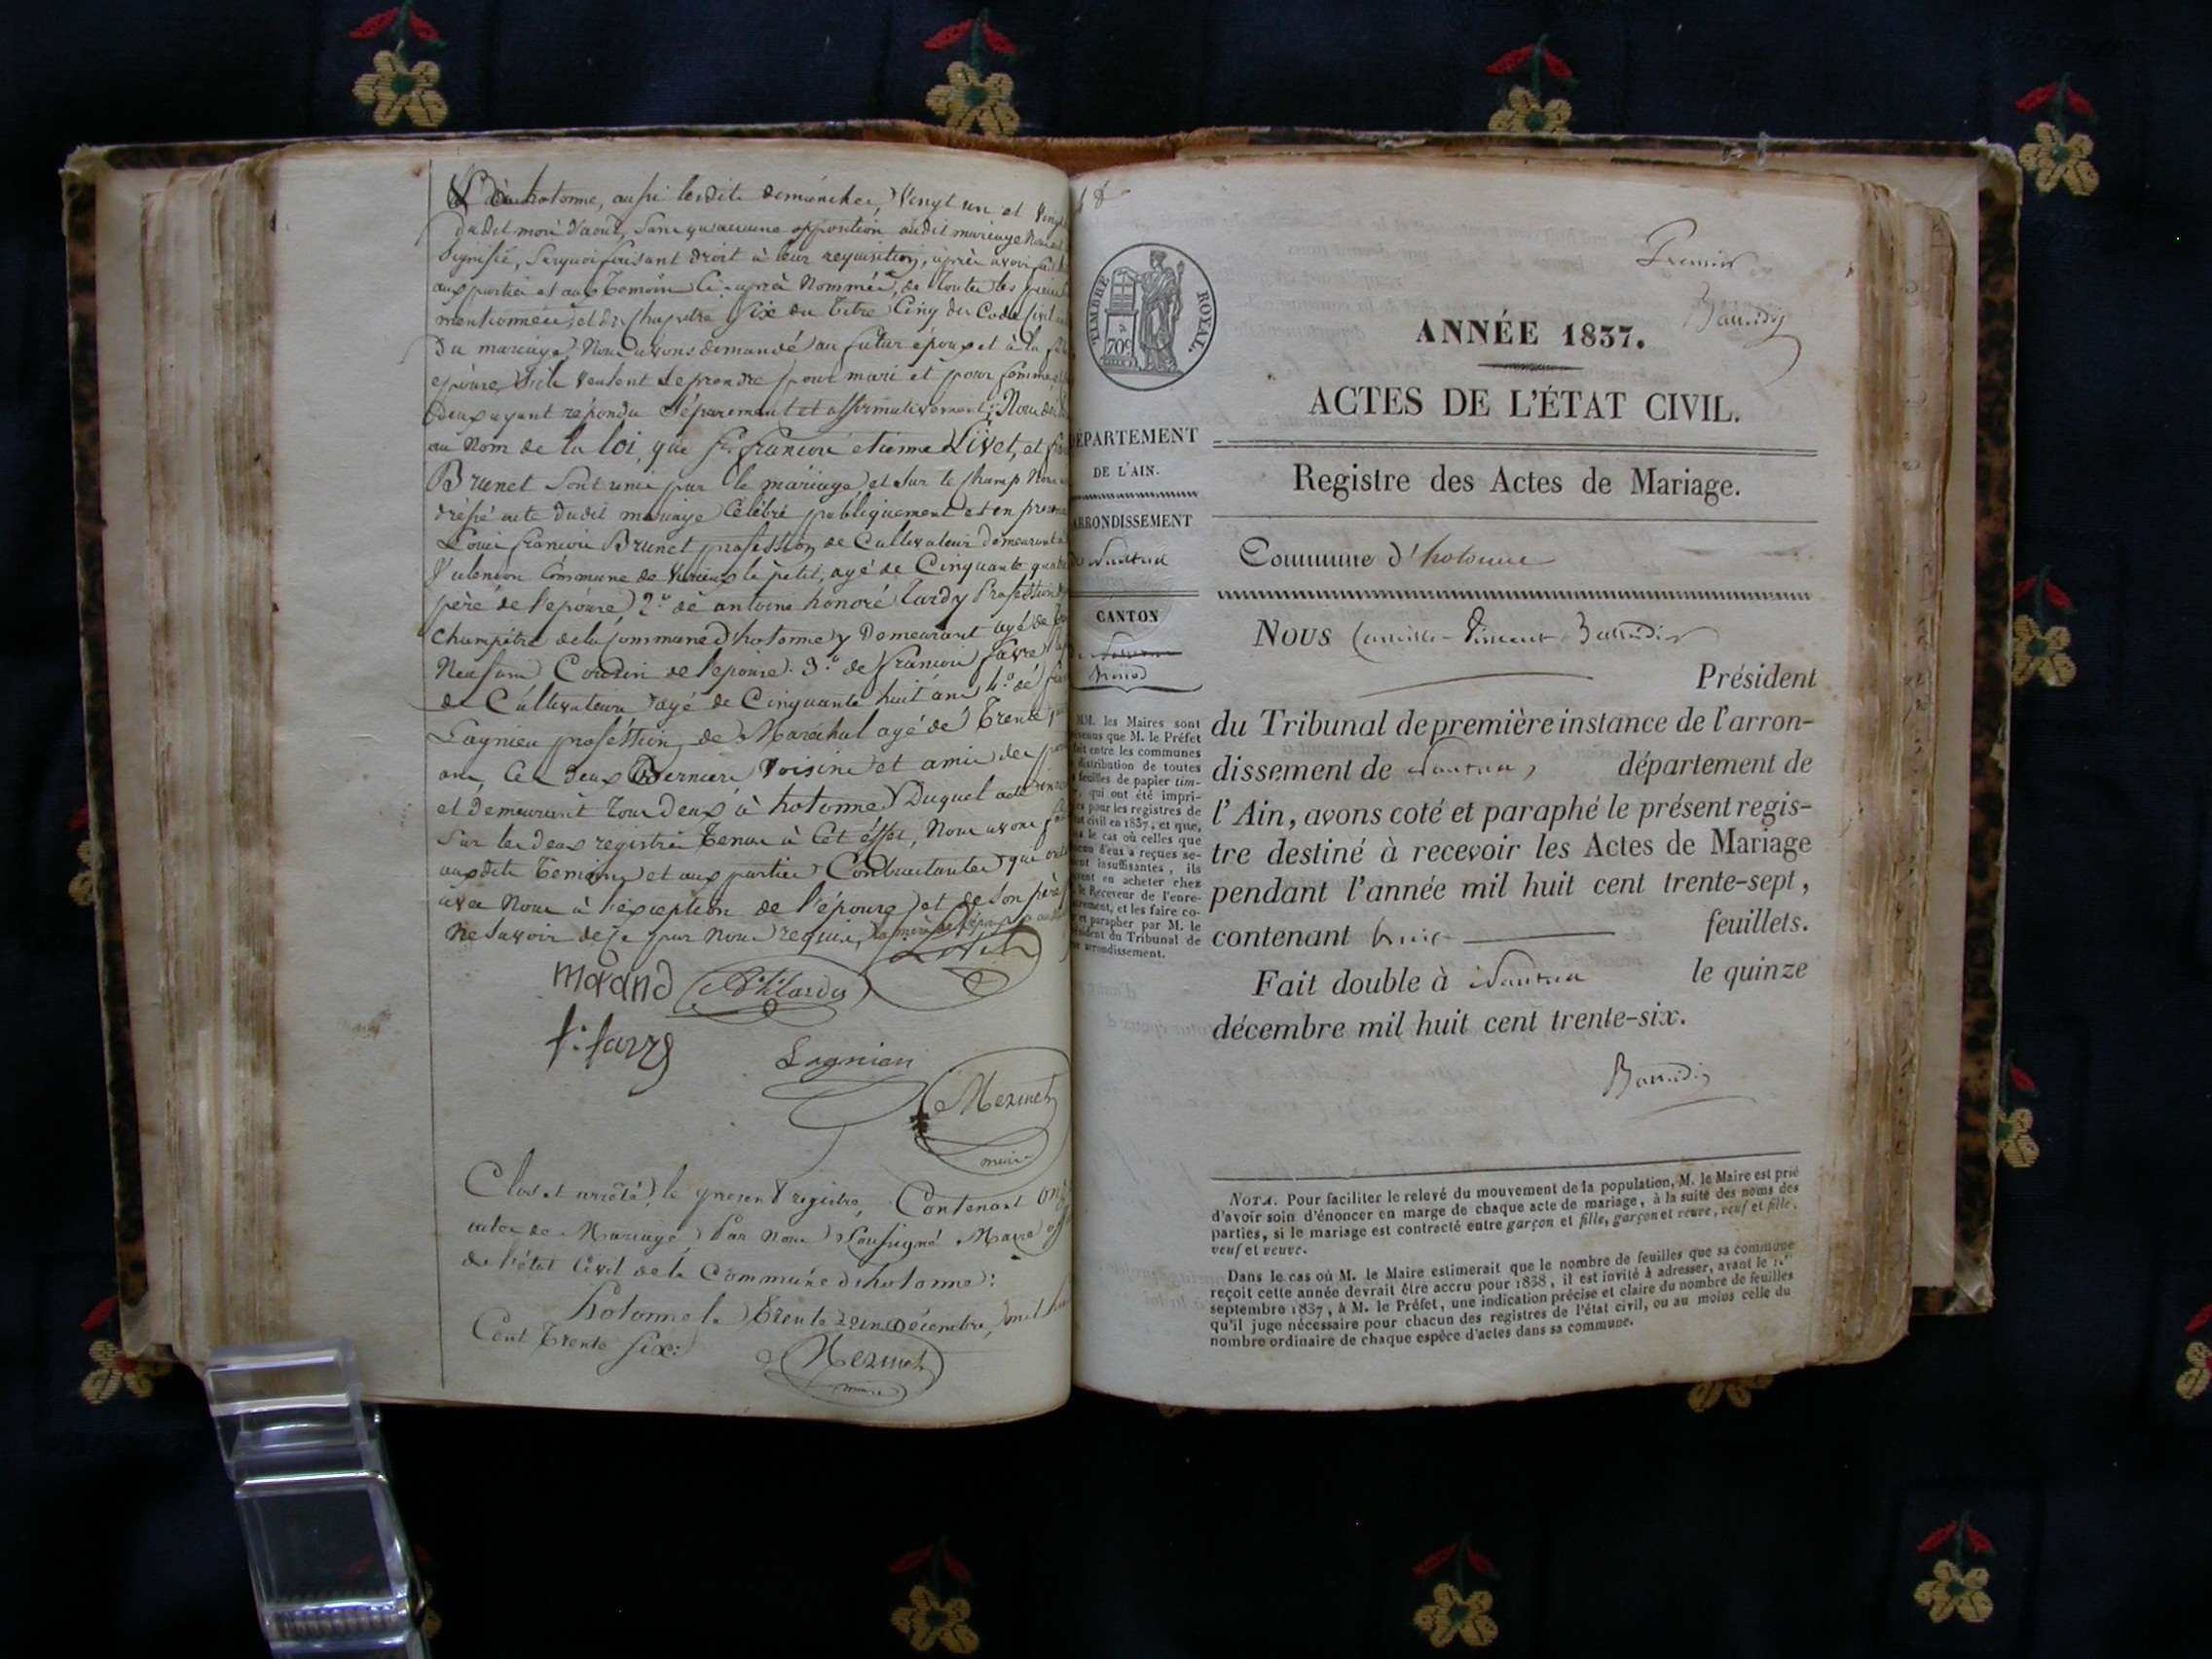 d'hotonne, aussi lesdits dimanches, Vingt un et Vingt
dudit mois d'aout, Sans qu'aucune opposition audit mariage Nous
Signifié, Surquoi faisant droit à leur requisition, après avoir fait
aux parties et aux Temoins Ci-après Nommés, de toutes les pièces
mentionnées, et du Chapitre Six du Titre Cinq du Code Civil
du mariage, Nous avons demandé au futur époux et à la
epouse S'ils veulent se prendre pour mari et pour femme,
deux ayant répondu Séparement et affirmativement; Nous
au Nom de la loi, que françois etienne Livet, et
Brunet Sont unis par le mariage et Sur le Champ Nous
dréssé acte dudit mariage Célébré publiquement et en
Louis françois Brunet profession de Cultivateur demeurant
Commune de Virieux le petit, agé de Cinquante
père de l'epouse, 2.º de antoine honoré Tardy Profession
Champêtre de la Commune d'hotonne y Demeurant agé de
Neuf ans Cousin de l'epouse. 3.º de françois favre
de Cultivateur agé de Cinquante huit ans 4.º de
Lagnieu profession de Maréchal agé de Trente
ans, Ces deux Derniers Voisins et amis des
et demeurant Tous deux à hotonne, Duquel acte
Sur les deux registres Tenus à Cet éffet, Nous avons
auxdits Temoins et aux parties Contractantes qui ont
avec Nous à l'éxception de l'épouse et de Son père
Ne Savoir de Ce par Nous requis,
Livet
morand
h. tardy
f: favre
Lagnieu
Mermet
maire
Clos et arrêté, le present registre, Contenant
actes de Mariage, Par Nous Soussigné Maire
de l'état Civil de la Commune d'hotonne:
hotonne le Trente un Décembre, mil
Cent Trente Six:
Mermet
maire
TIMBRE ROYAL.
70c
Premier
Baudin
ANNÉE 1837.
ACTES DE L'ÉTAT CIVIL.
DÉPARTEMENT
DE L'AIN.
Registre des Actes de Mariage.
ARRONDISSEMENT
de Nantua
Commune d'hotonne
CANTON
NOUS
Président
MM. les Maires sont
que M. le Préfet
fait entre les communes
distribution de toutes
feuilles de papier tim-
qui ont été impri-
pour les registres de
civil en 1837; et que,
le cas où celles que
d'eux a reçues se-
insuffisantes, ils
en acheter chez
le Receveur de l'enre-
et les faire co-
parapher par M. le
du Tribunal de
arrondissement.
du Tribunal de première instance de l'arron-
dissement de Nantua, département de
l'Ain, avons coté et paraphé le présent regis-
tre destiné à recevoir les Actes de Mariage
pendant l'année mil huit cent trente-sept,
contenant huit feuillets.
Fait double à Nantua le quinze
décembre mil huit cent trente-six.
Baudin
NOTA. Pour faciliter le relevé du mouvement de la population, M. le Maire est prié
d'avoir soin d'énoncer en marge de chaque acte de mariage, à la suite des noms des
parties, si le mariage est contracté entre garçon et fille, garçon et veuve, veuf et fille,
veuf et veuve.
Dans le cas où M. le Maire estimerait que le nombre de feuilles que sa commune
reçoit cette année devrait être accru pour 1838, il est invité à adresser, avant le 1.er
septembre 1837, à M. le Préfet, une indication précise et claire du nombre de feuilles
qu'il juge nécessaire pour chacun des registres de l'état civil, ou au moins celle du
nombre ordinaire de chaque espèce d'actes dans sa commune.